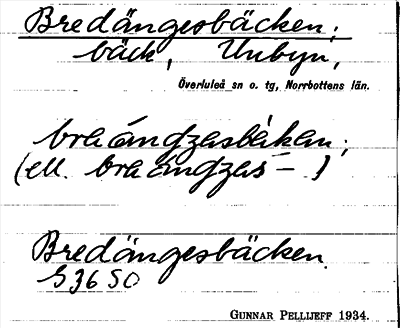 Bredängesbäcken;
bäck, Unbyn,
Överluleå sn o. tg, Norrbottens län.
braángzasbäkan;
(ell. braángzas- )
Bredängesbäcken.
S 36 SO
GUNNAR PELLIJEFF 1934.